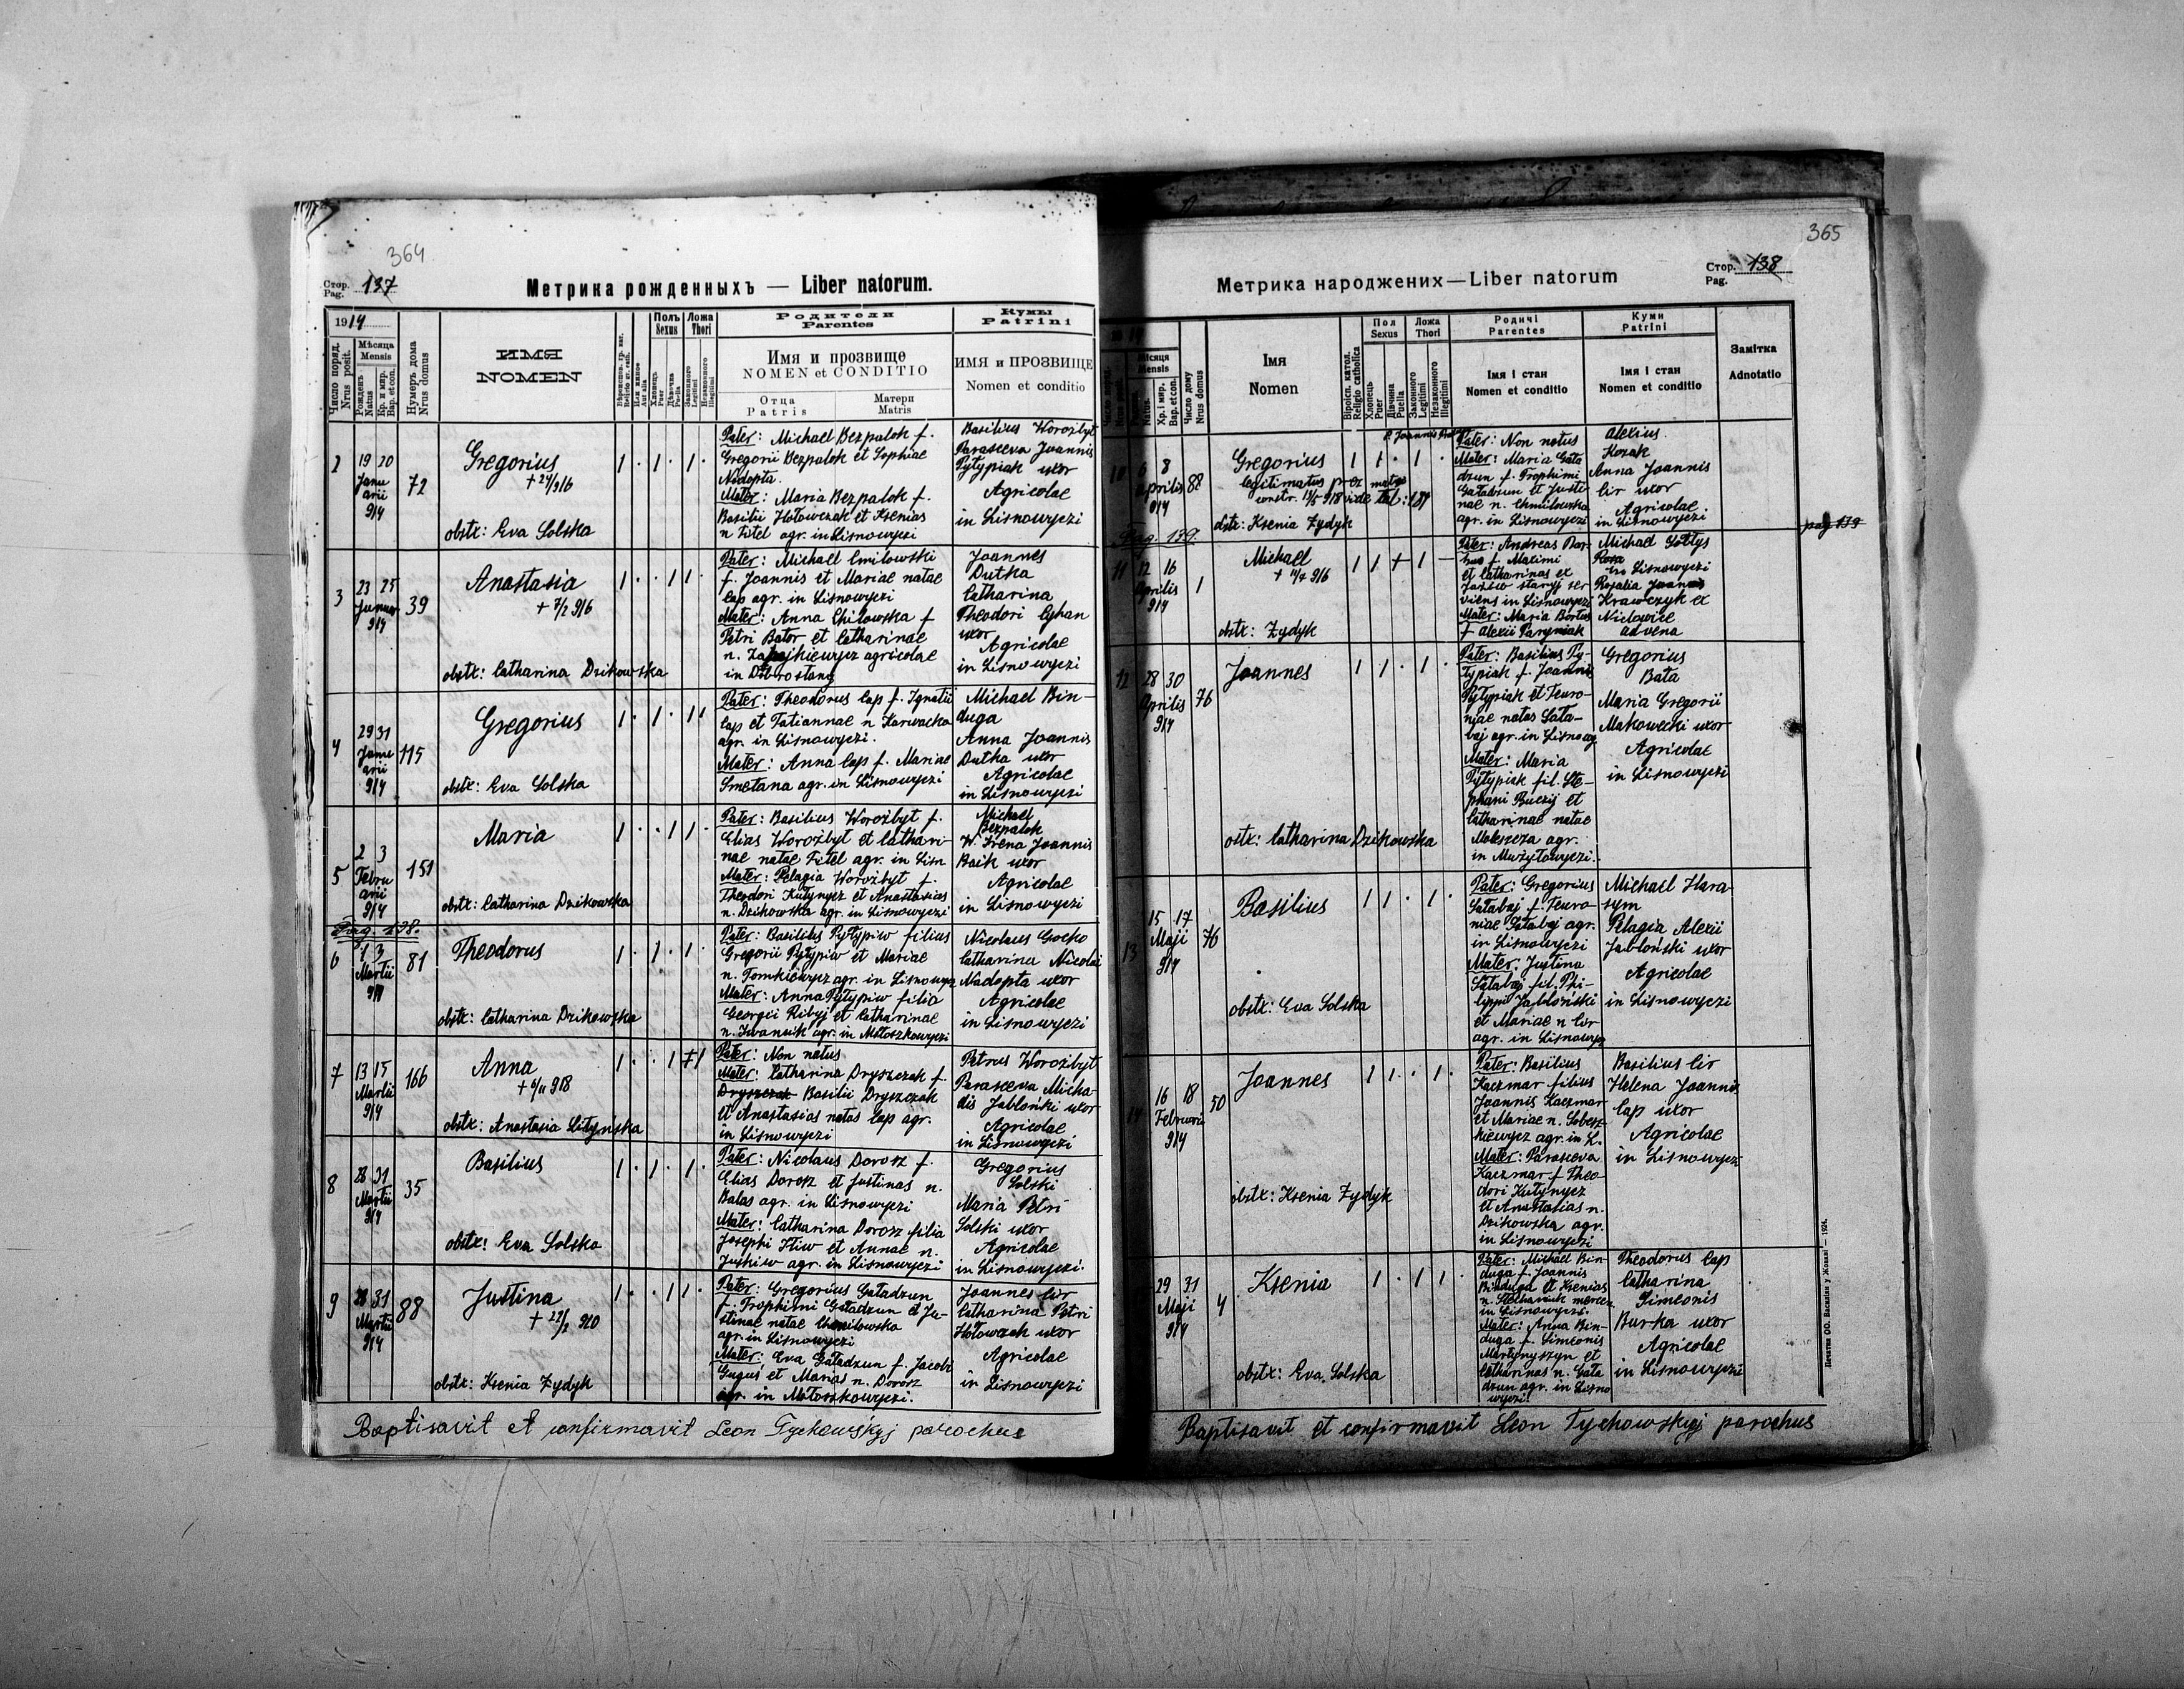 364
Стор.
Pag. 137
Метрика рожденныхъ — Liber natorum.
1914
Число поряд.
Nrus posit.
Мѣсяца
Mensis
Рожденъ
Natus
Кр. и мир.
Bap. et con.
Нумеръ дома
Nrus domus
ИМЯ
NOMEN
Полъ
Sexus
Хлопецъ
Puer
Дѣвочка
Puella
Ложа
Thori
Законного
Legitimi
Незаконного
Illegitimi
Родители
Parentes
Имя и прозвище
NOMEN et CONDITIO
Отца
Patris
Матери
Matris
Кумы
Patrini
ИМЯ и ПРОЗВИЩЕ
Nomen et conditio
2
19 20
Janu
arii
914
72
Gregorius
obstx: Eva Solska
Pater: Michael Bezpalok f.
Gregorii Bezpalok et Sophiae
Nadopta.
Mater: Maria Bezpalok f.
Basilii Hołowczak et Ksenias
n Fitel agr. in Lisnowyczi
Basilius Worożbyt
Parasceva Joannis
Pytypiak uxor
Agricolae
in Lisnowyczi
3
23 25
Januar
914
39
Anastasia
+ 7/2 916
obstx: Catharina Dzikowska
Pater: Michael Cmilowski
f. Joannis et Mariae natae
Cap agr. in Lisnowyczi
Mater: Anna Chilowska f
Petri Bator et Catharinae
agricolae
in Dobrostany
Joannes
Dutka
Catharina
Theodori Cyhan
uxor
Agricolae
in Lisnowyczi
4
29 31
Janu
arii
914
115
Gregorius
obstx: Eva Solska
Pater: Theodorus Cap f. Ignatii
Cap et Tatiannae n Karwacka
agr. in Lisnowyczi.
Mater: Anna Cap f. Mariae
Smetana agr. in Lisnowyczi
Michael Bin-
duga
Anna Joannis
Dutka uxor
Agricolae
in Lisnowyczi
5
2 3
Febru
arii
914
151
Maria
obstx: Catharina Dzikowska
Pater: Basilius Worożbyt f.
Elias Worożbyt et Cathari-
nae natae Fitel agr. in Lisn
Mater: Pelagia Worożbyt f.
Theodori Kutynycz et Anastasias
n. Dzikowska agr. in Lisnowyczi
Michael
Bezpalok
W. Irena Joannis
Baik uxor
Agricolae
in Lisnowyczi
Pag. 138.
6
1 3
Martii
914
81
Theodorus
obstx: Catharina Dzikowska
Pater: Basilius Pytypiw filius
Gregorii Pytypiw et Mariae
n. Tomkiewycz agr. in Lisnowycz
Mater: Anna Pytypiw filia
Georgii Kibyj et Catharinae
n. Iwancik agr. in Mołoszkowyczi
Nicolaus Gocko
Catharina Nicolai
Nadopta uxor
Agricolae
in Lisnowyczi
7
13 15
Martii
914
166
Anna
+ 6/11 918
obstx: Anastasia Lityńska
Pater: Non notus
Mater: Catharina Dryszczak f.
Dryszczak Basilii Dryszczak
et Anastasias natas Cap agr.
in Lisnowyczi
Petrus Worożbyt
Parasceva Micha-
elis Jabłoński uxor
Agricolae
in Lisnowyczi
8
28 31
Martii
914
35
Basilius
obstx: Eva Solska
Pater: Nicolaus Dorosz f.
Elias Dorosz et Justinas n.
Balas agr. in Lisnowyczi
Mater: Catharina Dorosz filia
Josephi Iliw et Annae n.
Juskiw agr. in Lisnowyczi
Gregorius
Solski
Maria Petri
Solski uxor
Agricolae
in Lisnowyczi.
9
31
Martii
914
88
Justina
obstx: Ksenia Zydyk
Pater: Gregorius Gatadzun
f. Trophimi Gatadzun et Ju-
stinae natae Chmilowska
agr. in Lisnowyczi
Mater: Eva Gatadzun f. Jacobi
Guguś et Marias n. Dorosz
agr. in Mołoszkowyczi.
Joannes Cir
Catharina Petri
Hołowczak uxor
Agricolae
in Lisnowyczi
Baptisavit et confirmavit Leon Tychowskyj parochus
365
Стор. 138
Pag.
Метрика народжених—Liber natorum
Місяця
Mensis
Хр. і мир.
Bap. et con.
Число дому
Nrus domus
Імя
Nomen
Віроісп. катол.
Religio catholica
Пол
Sexus
Хлопець
Puer
Дівчина
Puella
Ложа
Thori
Законного
Legitimi
Незаконного
Illegitimi
Родичі
Parentes
Імя і стан
Nomen et conditio
Куми
Patrini
Імя і стан
Nomen et conditio
Замітка
Adnotatio
10
6 8
Aprilis
914
88
Gregorius
obstx: Ksenia Zydyk
Pater: Non notus
Mater: Maria Gata
dzun f. Trophimi
Gatadzun et Justi
nae n. Chmilowska
agr. in Lisnowyczi
Alexius
Kozak
Anna Joannis
Cir uxor
Agricolae
in Lisnowyczi
pag 139
Pag. 139.
11
12 16
Aprilis
914
1
Michael
+ 11/7 916
obstx: Zydyk
Pater: Andreas Bor-
tus f. Maximi
et Catharinas ex
Jaziw staryj ser
viens in Lisnowyczi
Mater: Maria Bortus
f Alexii Paryniak
Michael Sołtys
Lisnowyczi
Rosalia Joannis
Krawczyk ex
advena
12
28 30
Aprilis
914
76
Joannes
ostx: Catharina Dzikowska
Pater: Basilius Py-
typiak f. Joannis
Pytypiak et Feuro-
niae natas Sata-
baj agr. in Lisnowy
Mater: Maria
Pytypiak fil. Ste-
phani Buczij et
Catharinae natae
Makszeza agr.
in Mużyłowyczi.
Gregorius
Bata
Maria Gregorii
Makowecki uxor
Agricolae
in Lisnowyczi
13
15 17
Maji
914
76
Basilius
obstx: Eva Solska
Pater: Gregorius
Satabaj f. Feuro-
niae Satabaj agr.
in Lisnowyczi
Mater: Justina
Satabaj fil. Phi-
lippi Jabłoński
et Mariae n Cir
agr. in Lisnowycz
Michael Hara
sym
Pelagia Alexii
Jabłoński uxor
Agricolae
in Lisnowyczi
14
16 18
Februarii
914
50
Joannes
obstx: Ksenia Zydyk
Pater: Basilius
Kaczmar filius
Joannis Kaczmar
et Mariae n. Sobesz-
kiewycz agr. in L.
Mater: Parasceva
Kaczmar f Theo-
dori Kutynycz
et Anastasias n.
Dzikowska agr.
in Lisnowyczi
Basilius Cir
Helena Joannis
Cap uxor
Agricolae
in Lisnowyczi
29 31
Maji
914
4
Ksenia
obstx: Eva Solska
Pater: Michael Bin-
duga f. Joannis
Binduga et Ksenias
in Lisnowyczi.
Mater: Anna Bin-
duga f. Simeonis
Martynyszyn et
Catharinas n. Gata
dzun agr. in Lisno
wyczi.
Theodorus Cap
Catharina
Simeonis
Burka uxor
Agricolae
in Lisnowyczi
Baptisavit et confirmavit Leon Tychowskyj parochus
Печатня ОО. Василіян у Жовкві — 1924.